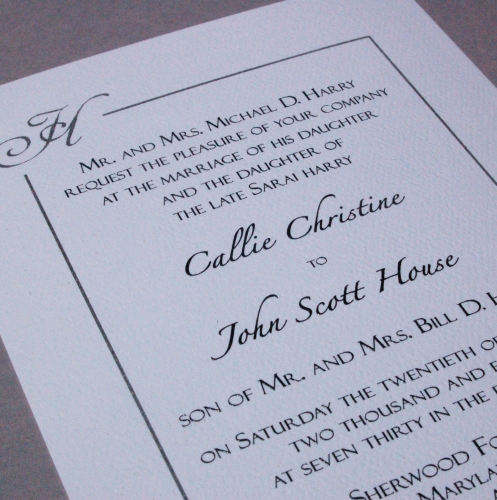 H
Mr. and Mrs. Michael D. Harry
request the pleasure of your company
at the marriage of his daughter
and the daughter of
the late Sarai Harry
Callie Christine
to
John Scott House
son of Mr. and Mrs. Bill D.
on Saturday the twentieth
two thousand and
at seven thirty in the
Sherwood